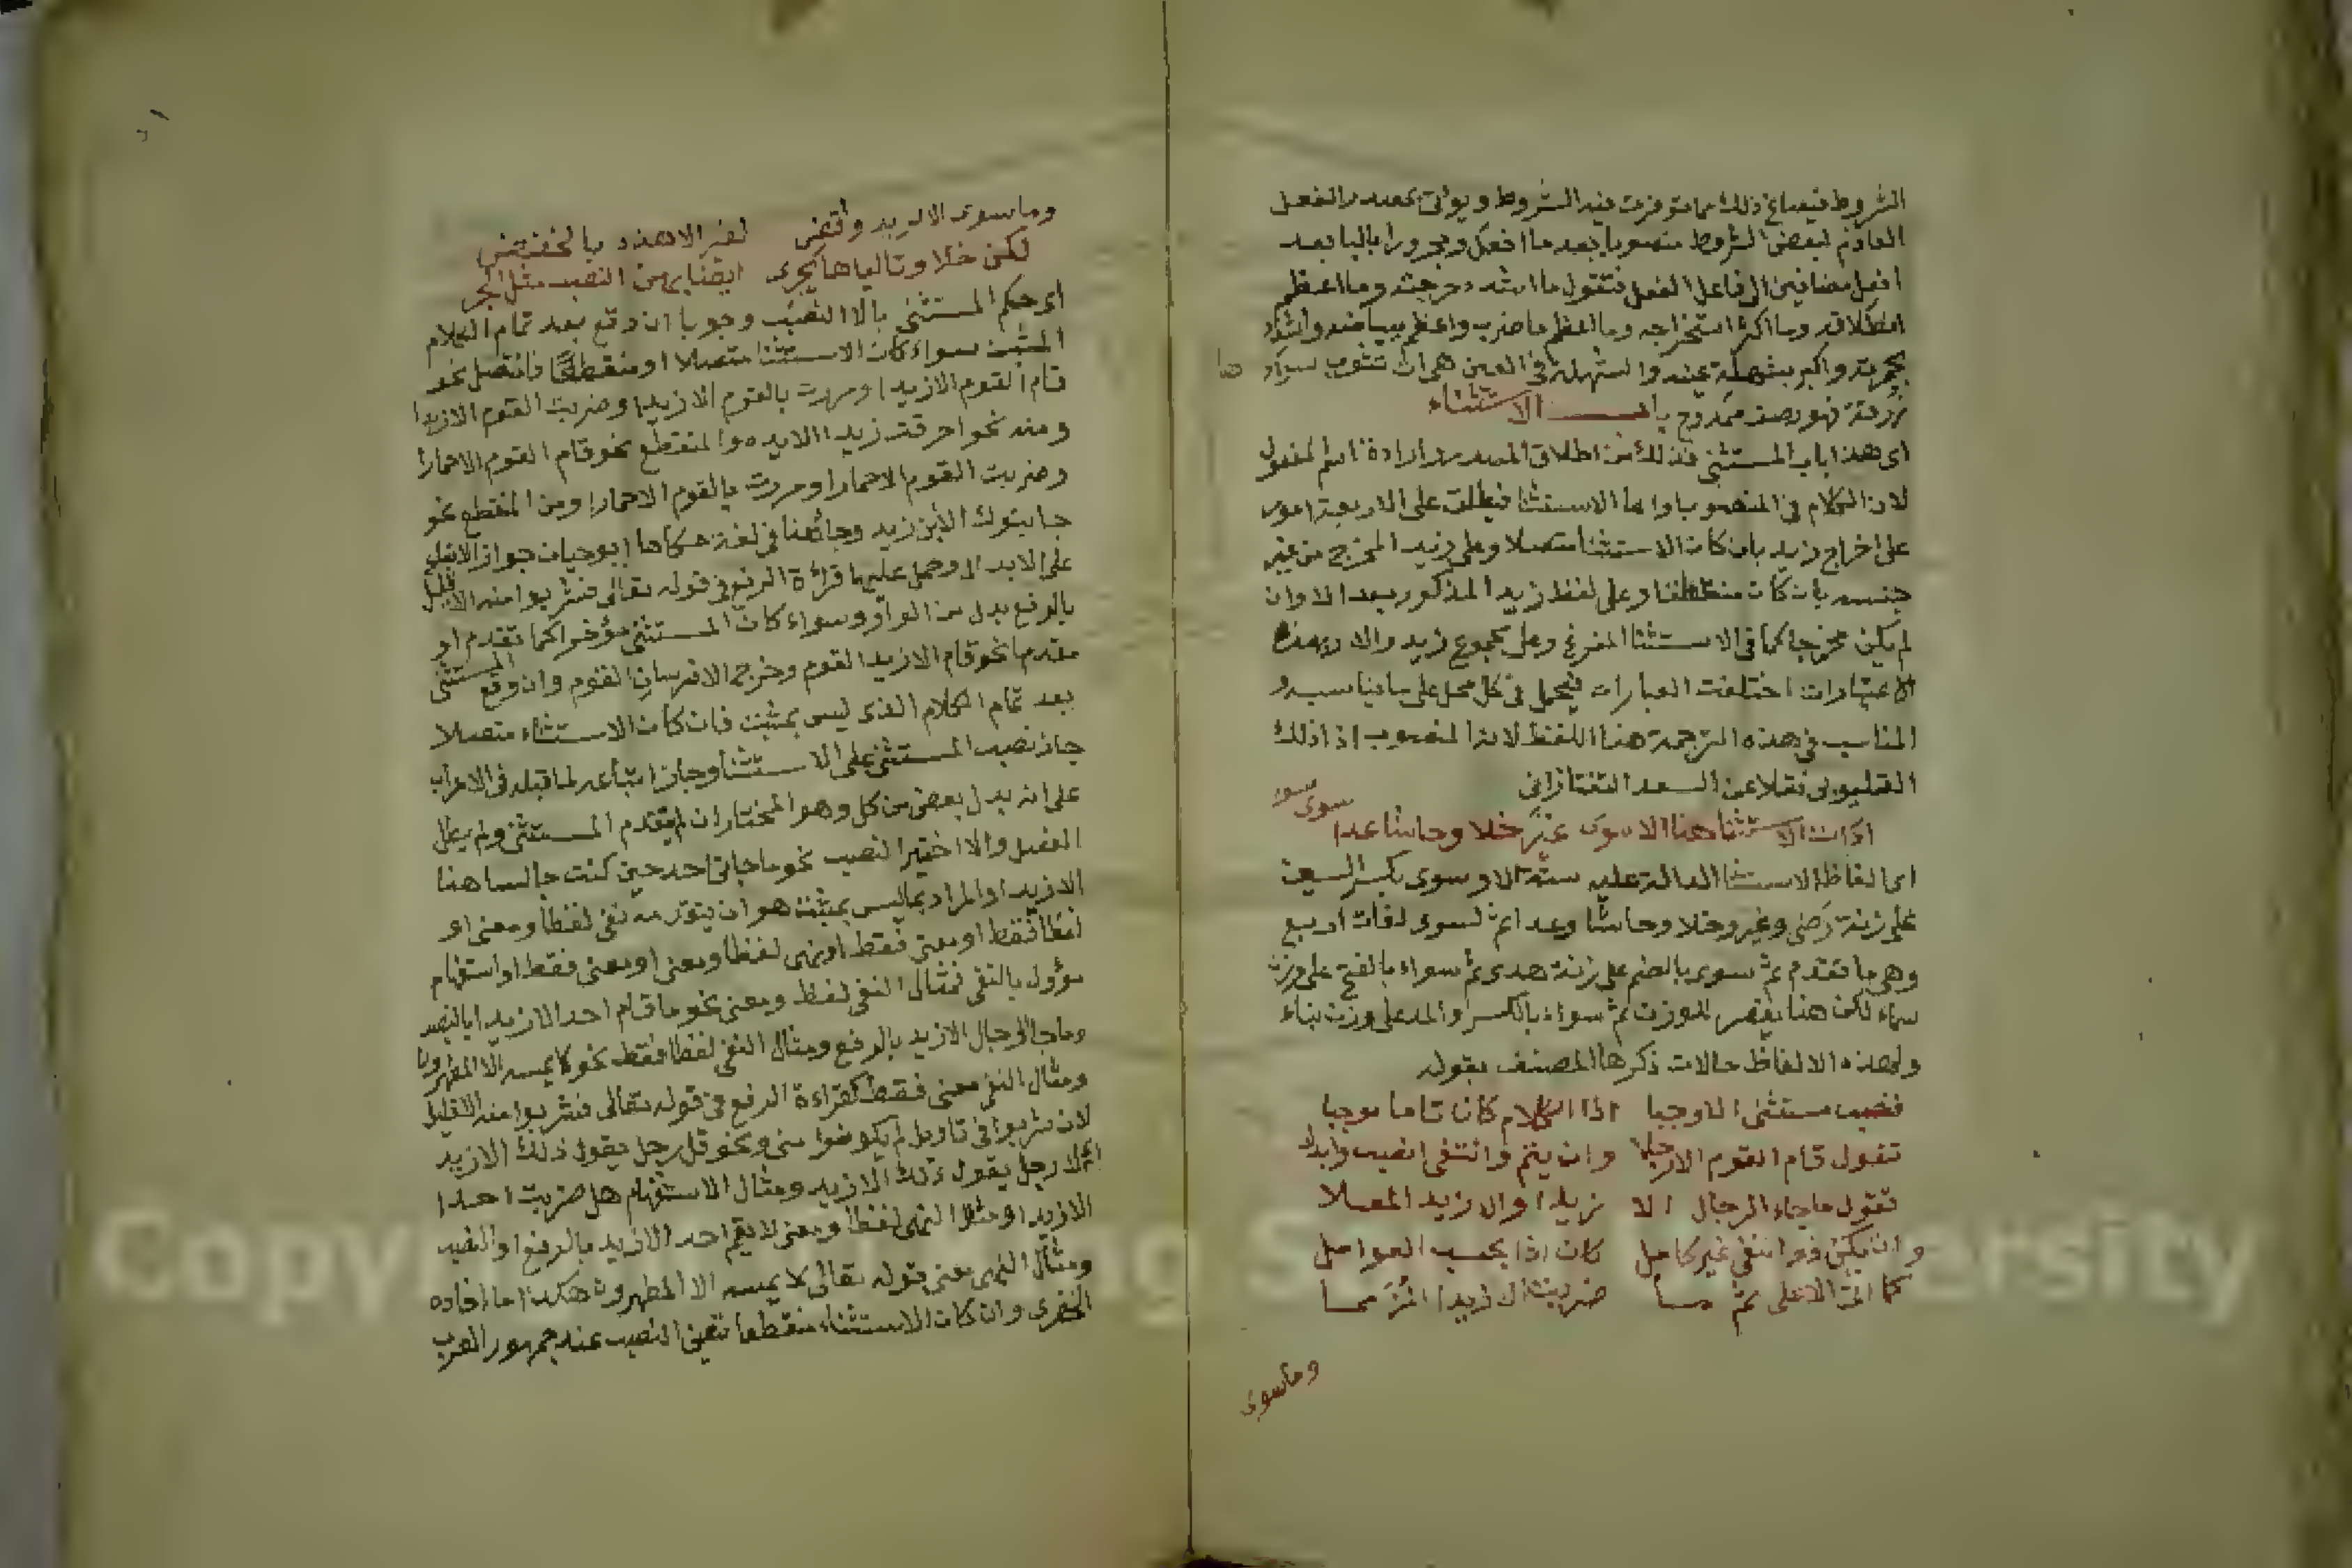 الشروط فيصاغ ذلك مما توفرت فيه الشروط ويؤتى بمصدر الفعل
العادم لبعض الشروط منصوبا بعد ما افعل ومجرورا بالبا بعد
افعل مضافين الى فاعل الفعل فتقول ما اشد دحرجته وما اعظم
انطلاقه وما اكثر استخراجه وما اعظم ما ضرب واعظم ببياضه واشدد
بحمرته واكبر بشهلة عينه والشهلة في العين هي ان تشوب سوادها
زرقة فهو بصدد ممدوح باب الاستثناء
اى هذا باب المستثنى فذلك من اطلاق المصدر وارادة اسم المفعول
لان الكلام في المنصوبات واما الاستثنا فيطلق على الاربعة امور
على اخراج زيد بان كان الاستثنا متصلا وعلى زيد المخرج من غير
جنسه بان كان منقطعا وعلى لفظ زيد المذكور بعد الا وان
لم يكن مخرجا كما في الاستثنا المفرغ وعلى مجموع زيد والا وبهذه
الاعتبارات اختلفت العبارات فيحمل في كل محل على ما يناسبه و
المناسب في هذه الترجمة هنا اللفظ لانه المنصوب اذ ذلك
القليوبى نقلا عن السعد التفتازانى
ادات الاستثنا هنا الا سوى غير خلا وحاشا عدا سوى سوا
اى الفاظ الاستثنا الدالة عليه ستة الا وسوى بكسر السين
على زنة رضى وغير وخلا وحاشا وعدا ثم لسوى لغات اربع
وهى ما تقدم ثم سوى بالضم على زنة هدى ثم سواء بالفتح على وزن
سماء لكن هنا بقصر للوزن ثم سواء بالكسر والمد على وزن بناء
ولهذه الالفاظ حالات ذكرها المصنف بقوله
فنصب مستثنى الا وجبا اذا الكلام كان تاما موجبا
تقول قام القوم الا رجلا وان يتم وانتفى انصب وابدلا
تقول ما جاء الرجال الا زيدا والا زيد المعلا
وان يكن ذو انتفى غير كامل كان اذا بحسب العوامل
كما الا على ثم ما ضربت الا زيدا
وماسوى
وماسوى الا زيد واقتضى لغير الا هذه بالخفض
لكن خلا وتالياها يجرى ايضا بهن النصب مثل الجر
اى حكم المستثنى بالا النصب وجوبا ان وقع بعد تمام الكلام
المثبت سواء كان الاستثنا متصلا او منقطعا فالمتصل نحو
قام القوم الا زيدا ومررت بالقوم الا زيدا وضربت القوم الا زيدا
ومنه نحو احرقت زيدا الا يده والمنقطع نحو قام القوم الا حمارا
وضربت القوم الا حمارا ومررت بالقوم الا حمارا ومن المنقطع نحو
جا بنوك الا ابن زيد وجا هنا في لغة حكاها ابو حيان جواز الاتباع
على الابدال وحمل عليها قراءة الرفع في قوله تعالى فشربوا منه الا قليل
بالرفع بدل من الواو وسواء كان المستثنى مؤخرا كما تقدم او
مقدما نحو قام الا زيدا القوم وخرج الا فرسان القوم وان وقع المستثنى
بعد تمام الكلام الذى ليس بمثبت فان كان الاستثناء متصلا
جاز نصب المستثنى على الاستثنا وجاز اتباعه لما قبله في الاعراب
على انه بدل بعض من كل وهو المختار ان لم يتقدم المستثنى ولم يطل
الفصل والا اختير النصب نحو ما جانى احد حين كنت جالسا هنا
الا زيدا والمراد بما ليس بمثبت هو ان يتقدمه نفى لفظا ومعنى او
لفظا فقط او معنى فقط او نهى لفظا ومعنى او معنى فقط او استفهام
مؤول بالنفى فمثال النفى لفظا ومعنى نحو ما قام احد الا زيدا بالنصب
وما جا الرجال الا زيد بالرفع ومثال النفى لفظا فقط نحو لا يمسه الا المطهرون
ومثال النفى معنى فقط كقراءة الرفع في قوله تعالى فشربوا منه الا قليل
لان شربوا في تاويل لم يكونوا منى ونحو قل رجل يقول ذلك الا زيد
اى لا رجل يقول ذلك الا زيد ومثال الاستفهام هل ضربت احدا
الا زيدا ومثال النهى لفظا ومعنى لا يقم احد الا زيد بالرفع والنصب
ومثال النهى معنى قوله تعالى لا يمسه الا المطهرون هكذا افاده
الخضرى وان كان الاستثناء منقطعا تعين النصب عند جمهور العرب